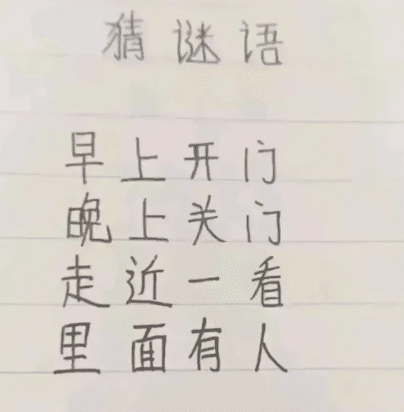 猜谜语
早上开门
晚上关门
走近一看
里面有人